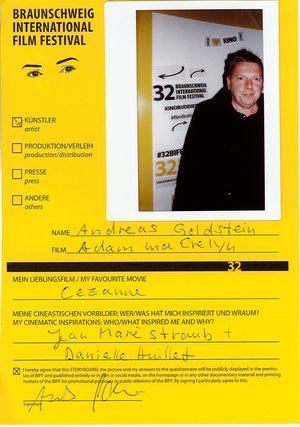 BRAUNSCHWEIG
INTERNATIONAL
FILM FESTIVAL
I KINO
32 BRAUNSCHWEIG
INTERNATIONAL
FILM FESTIVAL
KINOBUDDIES
#filmfest
#32BIFF
32
VOLKSWAGEN
KÜNSTLER
artist
PRODUKTION/VERLEIH
production/distribution
PRESSE
press
ANDERE
others
NAME Andreas Goldstein
FILM Adam und Evelyn
32
MEIN LIEBLINGSFILM / MY FAVOURITE MOVIE
Cezanne
MEINE CINEASTISCHEN VORBILDER: WER/WAS HAT MICH INSPIRIERT UND WRAUM?
MY CINEMATIC INSPIRATIONS: WHO/WHAT INSPIRED ME AND WHY?
Jean Marie Straub +
Danielle Huillet
I hereby agree that this STORYBOARD, the picture and my answers to the questionnaire will be publicly displayed in the premises of BIFF and published entirely or in part in social media, on the homepage or in any other documentary material and printing matters of the BIFF for promotional purposes or public relations of the BIFF. By signing I particularly agree to this.
Signature